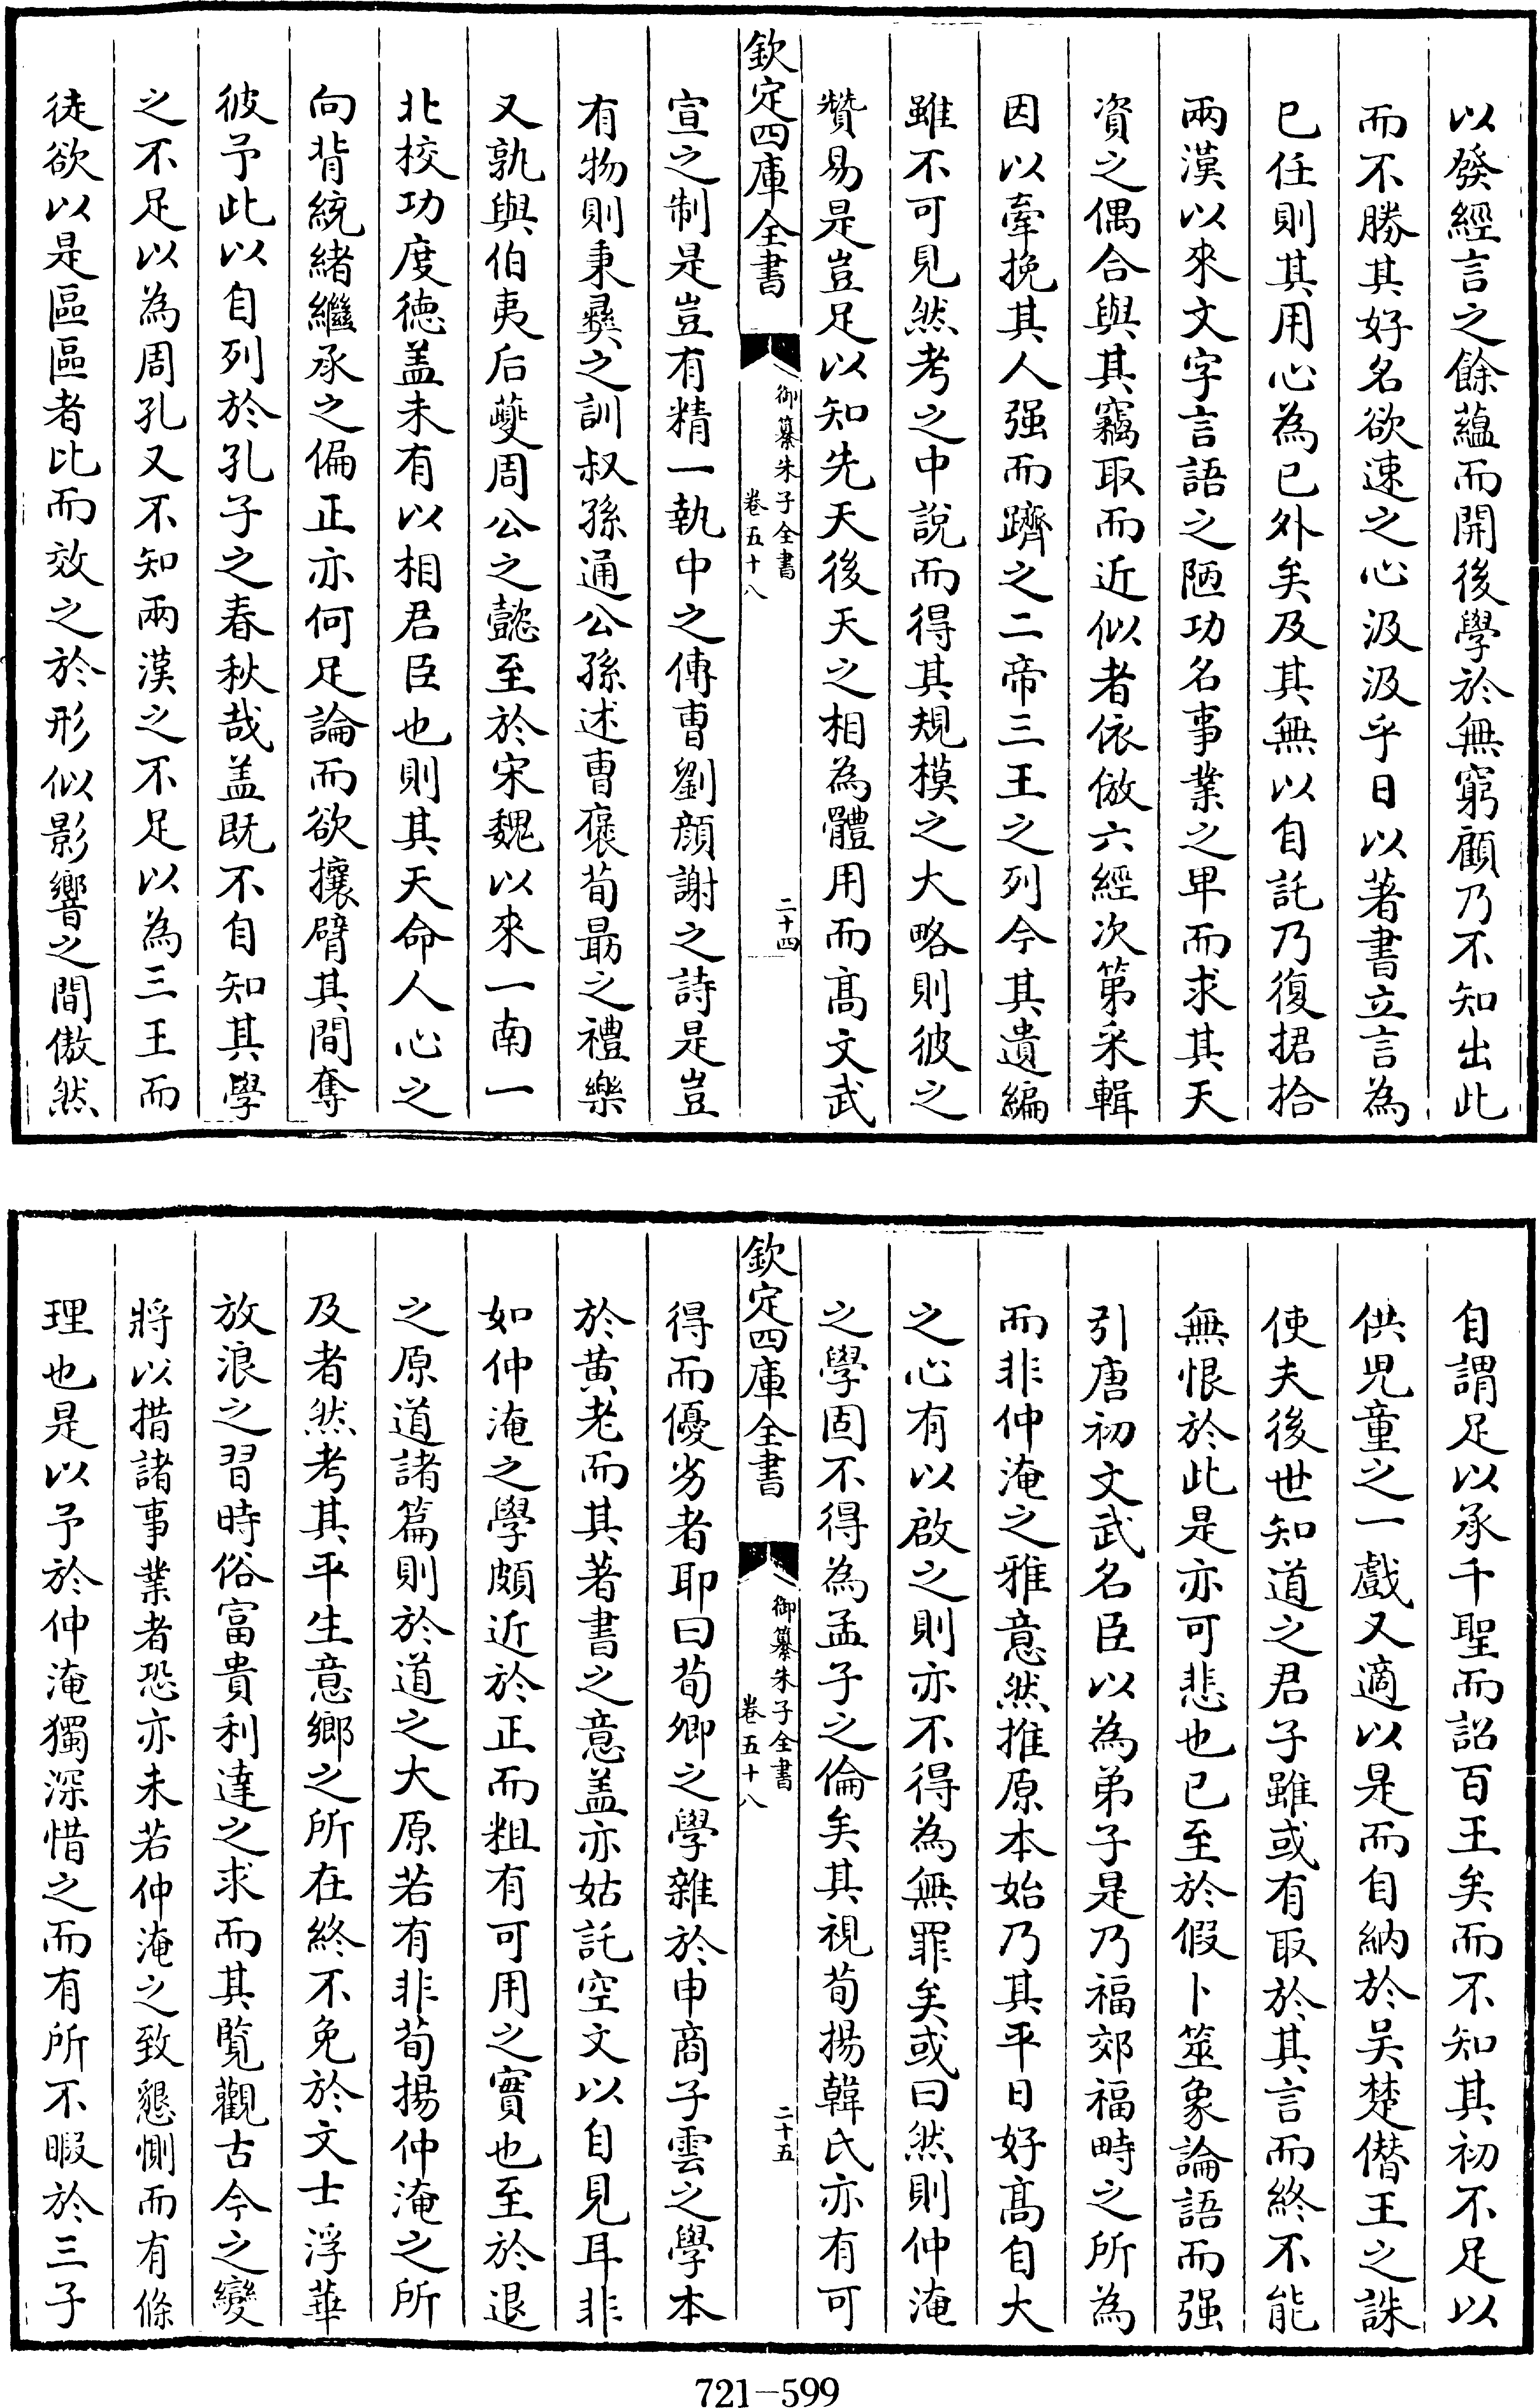 以發經言之餘蘊而開後學於無窮顧乃不知出此
而不勝其好名欲速之心汲汲乎日以著書立言為
已任則其用心為已外矣及其無以自託乃復捃拾
兩漢以來文字言語之陋功名事業之卑而求其天
資之偶合與其竊取而近似者依倣六經次第采輯
因以牽挽其人强而躋之二帝三王之列今其遺編
雖不可見然考之中說而得其規模之大略則彼之
贊易是豈足以知先天後天之相為體用而髙文武
欽定四庫全書
御纂朱子全書
卷五十八
二十四
宣之制是豈有精一執中之傳曹劉顔謝之詩是豈
有物則秉彛之訓叔孫通公孫述曹襃荀朂之禮樂
又孰與伯夷后夔周公之懿至於宋魏以來一南一
北校功度德盖未有以相君臣也則其天命人心之
向背統緒繼承之偏正亦何足論而欲攘臂其間奪
彼予此以自列於孔子之春秋哉盖既不自知其學
之不足以為周孔又不知兩漢之不足以為三王而
徒欲以是區區者比而效之於形似影響之間傲然
自謂足以承千聖而詔百王矣而不知其初不足以
供兒童之一戲又適以是而自納於吳楚僭王之誅
使夫後世知道之君子雖或有取於其言而終不能
無恨於此是亦可悲也已至於假卜筮象論語而强
引唐初文武名臣以為弟子是乃福郊福畤之所為
而非仲淹之雅意然推原本始乃其平日好髙自大
之心有以啟之則亦不得為無罪矣或曰然則仲淹
之學固不得為孟子之倫矣其視荀揚韓氏亦有可
欽定四庫全書
御纂朱子全書
卷五十八
二十五
得而優劣者耶曰荀卿之學雜於申商子雲之學本
於黄老而其著書之意盖亦姑託空文以自見耳非
如仲淹之學頗近於正而粗有可用之實也至於退
之原道諸篇則於道之大原若有非荀揚仲淹之所
及者然考其平生意鄉之所在終不免於文士浮華
放浪之習時俗富貴利達之求而其覧觀古今之變
將以措諸事業者恐亦未若仲淹之致懇惻而有條
理也是以予於仲淹獨深惜之而有所不暇於三子
721-599